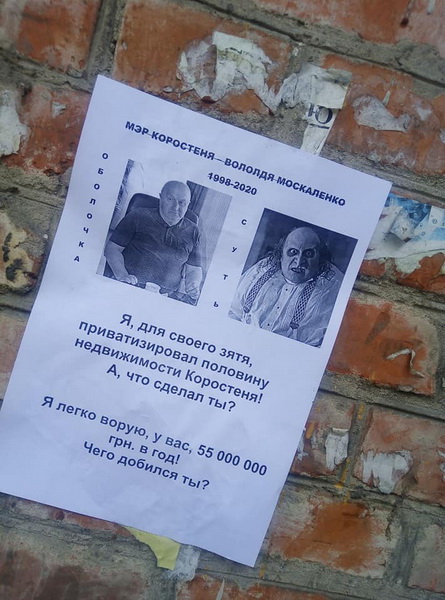 МЭР КОРОСТЕНЯ – ВОЛОДЯ МОСКАЛЕНКО
1998-2020
ОБОЛОЧКА
СУТЬ
Я, для своего зятя,
приватизировал половину
недвижимости Коростеня!
А, что сделал ты?
Я легко ворую, у вас, 55 000 000
грн. в год!
Чего добился ты?
Ю